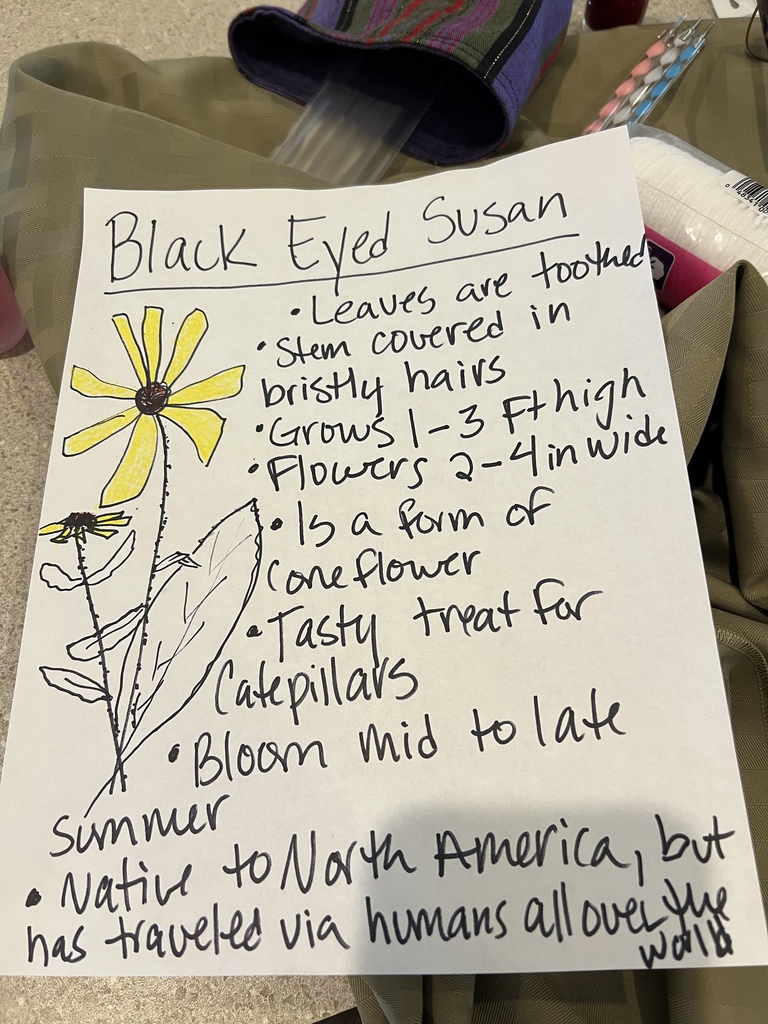 Black Eyed Susan
• Leaves are toothed
• Stem covered in
bristly hairs
• Grows 1-3 Ft high
• Flowers 2-4 in wide
• Is a form of
Coneflower
• Tasty treat for
Catepillars
• Bloom mid to late
summer
• Native to North America, but
has traveled via humans all over the
world